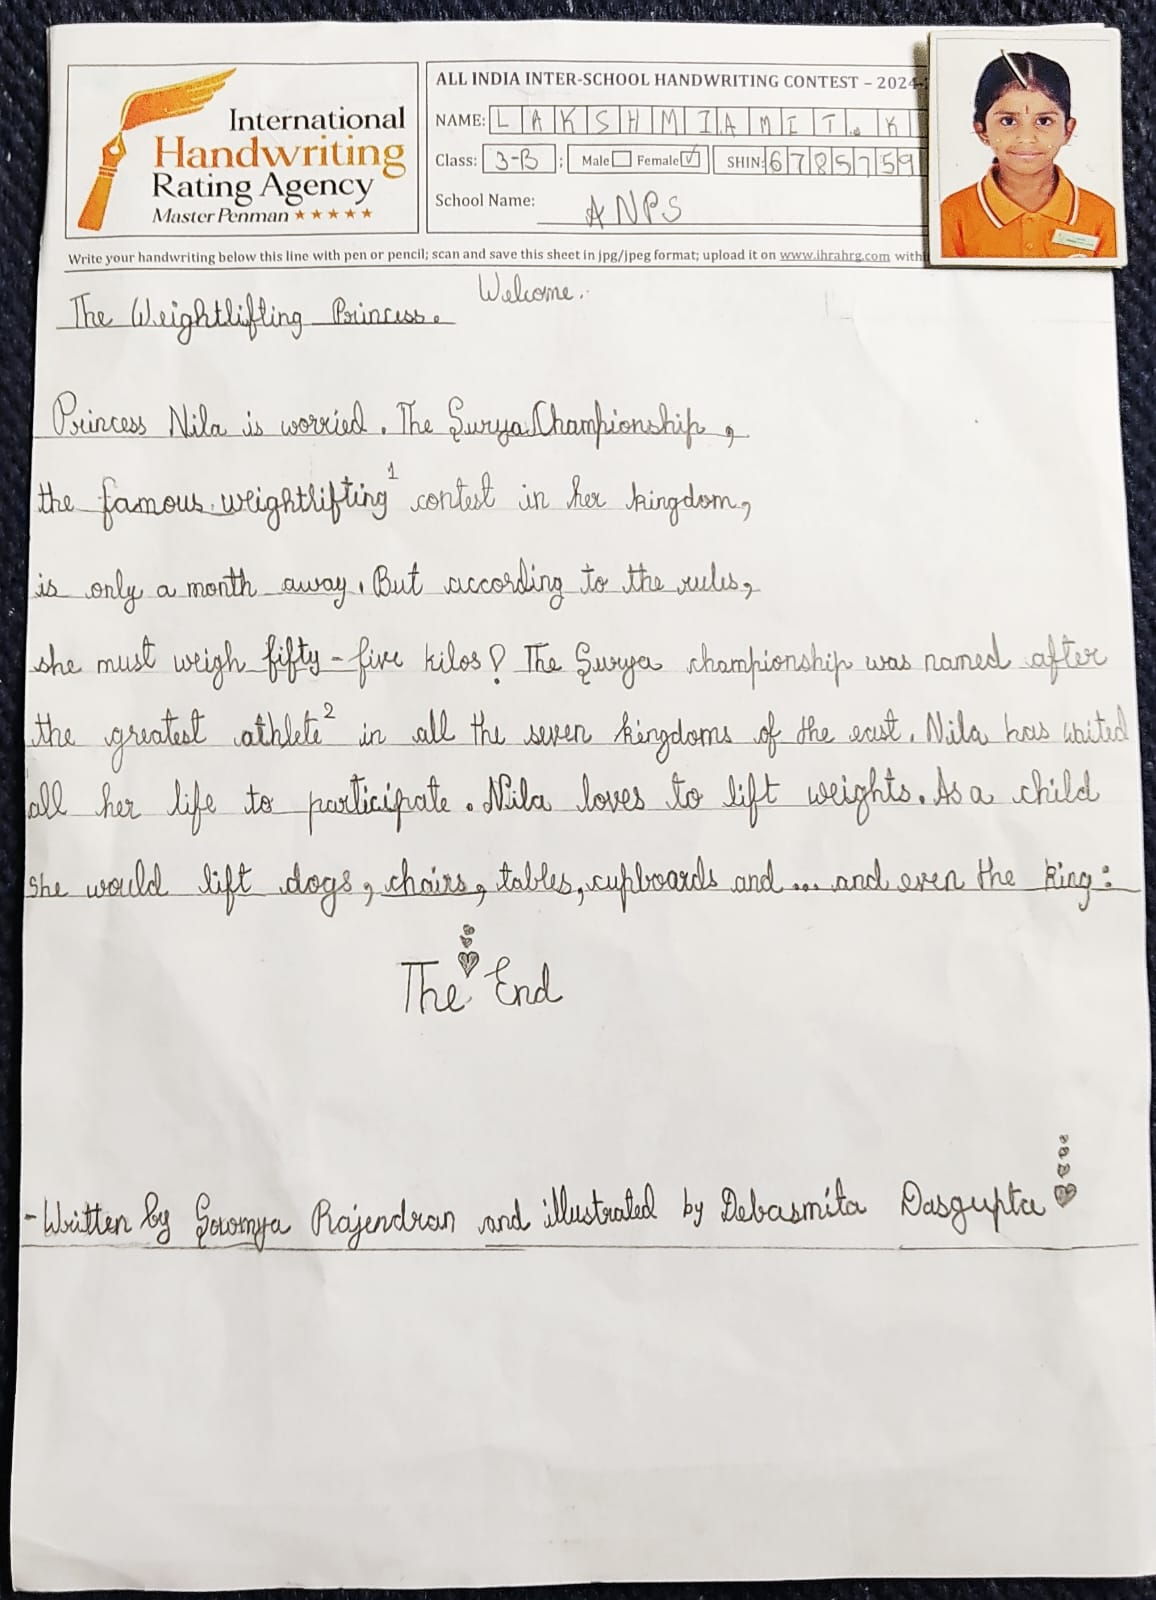 International
Handwriting
Rating Agency
Master Penman ★★★★★
ALL INDIA INTER-SCHOOL HANDWRITING CONTEST – 2024-
NAME: L A K S H M I . A M I T . K
Class: 3-B ; Male Female ✓ SHIN: 6785759
School Name: ANPS
Write your handwriting below this line with pen or pencil; scan and save this sheet in jpg/jpeg format; upload it on www.ihrahrg.com with
Welcome.
The Weightlifting Princess.
Princess Nila is worried. The Surya Championship,
the famous weightlifting¹ contest in her kingdom,
is only a month away. But according to the rules,
she must weigh fifty-five kilos! The Surya championship was named after
the greatest athlete² in all the seven kingdoms of the east. Nila has waited
all her life to participate. Nila loves to lift weights. As a child
she would lift dogs, chairs, tables, cupboards and ... and even the king:
The End
-Written by Sowmya Rajendran and illustrated by Debasmita Dasgupta